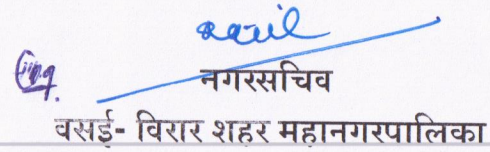 नगरसचिव
वसई- विरार शहर महानगरपालिका